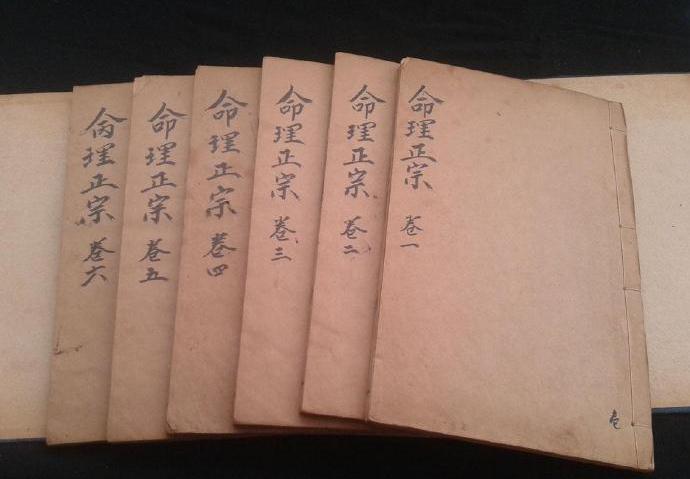 命理正宗 卷一
命理正宗 卷二
命理正宗 卷三
命理正宗 卷四
命理正宗 卷五
命理正宗 卷六